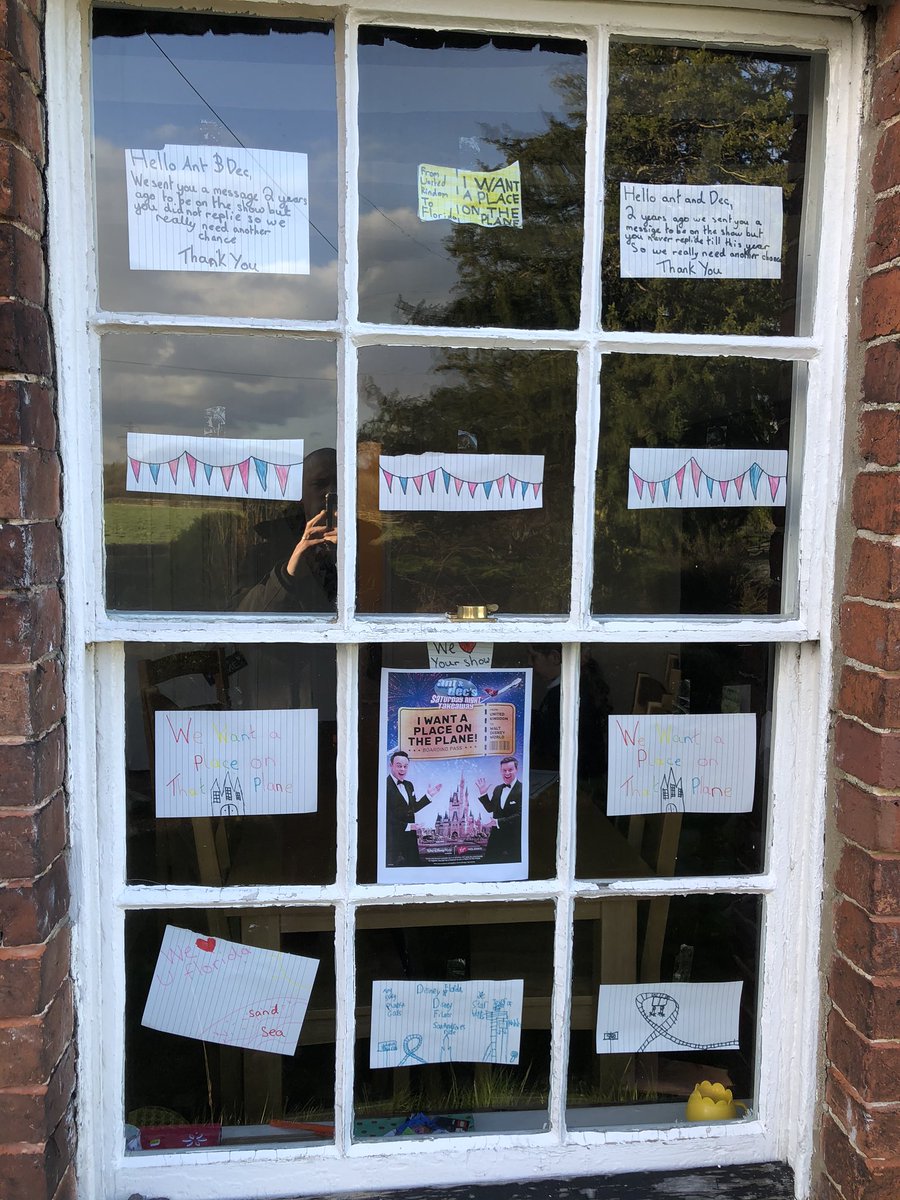 Hello Ant & Dec,
We sent you a message 2 years
ago to be on the show but
you did not replie so we
really need another
chance
Thank You
From
United
Kindom
To
Florida
I WANT
A PLACE
ON THE
PLANE
Hello ant and Dec,
2 years ago we sent you a
message to be on the show but
you never replide till this year
So we really need another chance
Thank You
We
Your show
We Want a
Place on
That Plane
ant &
dec's
SATURDAY NIGHT
TAKEAWAY
I WANT A PLACE
ON THE PLANE!
BOARDING PASS
UNITED
KINGDOM
WALT
DISNEY
WORLD
We Want a
Place on
That Plane
We
Florida
sand
Sea
Disney